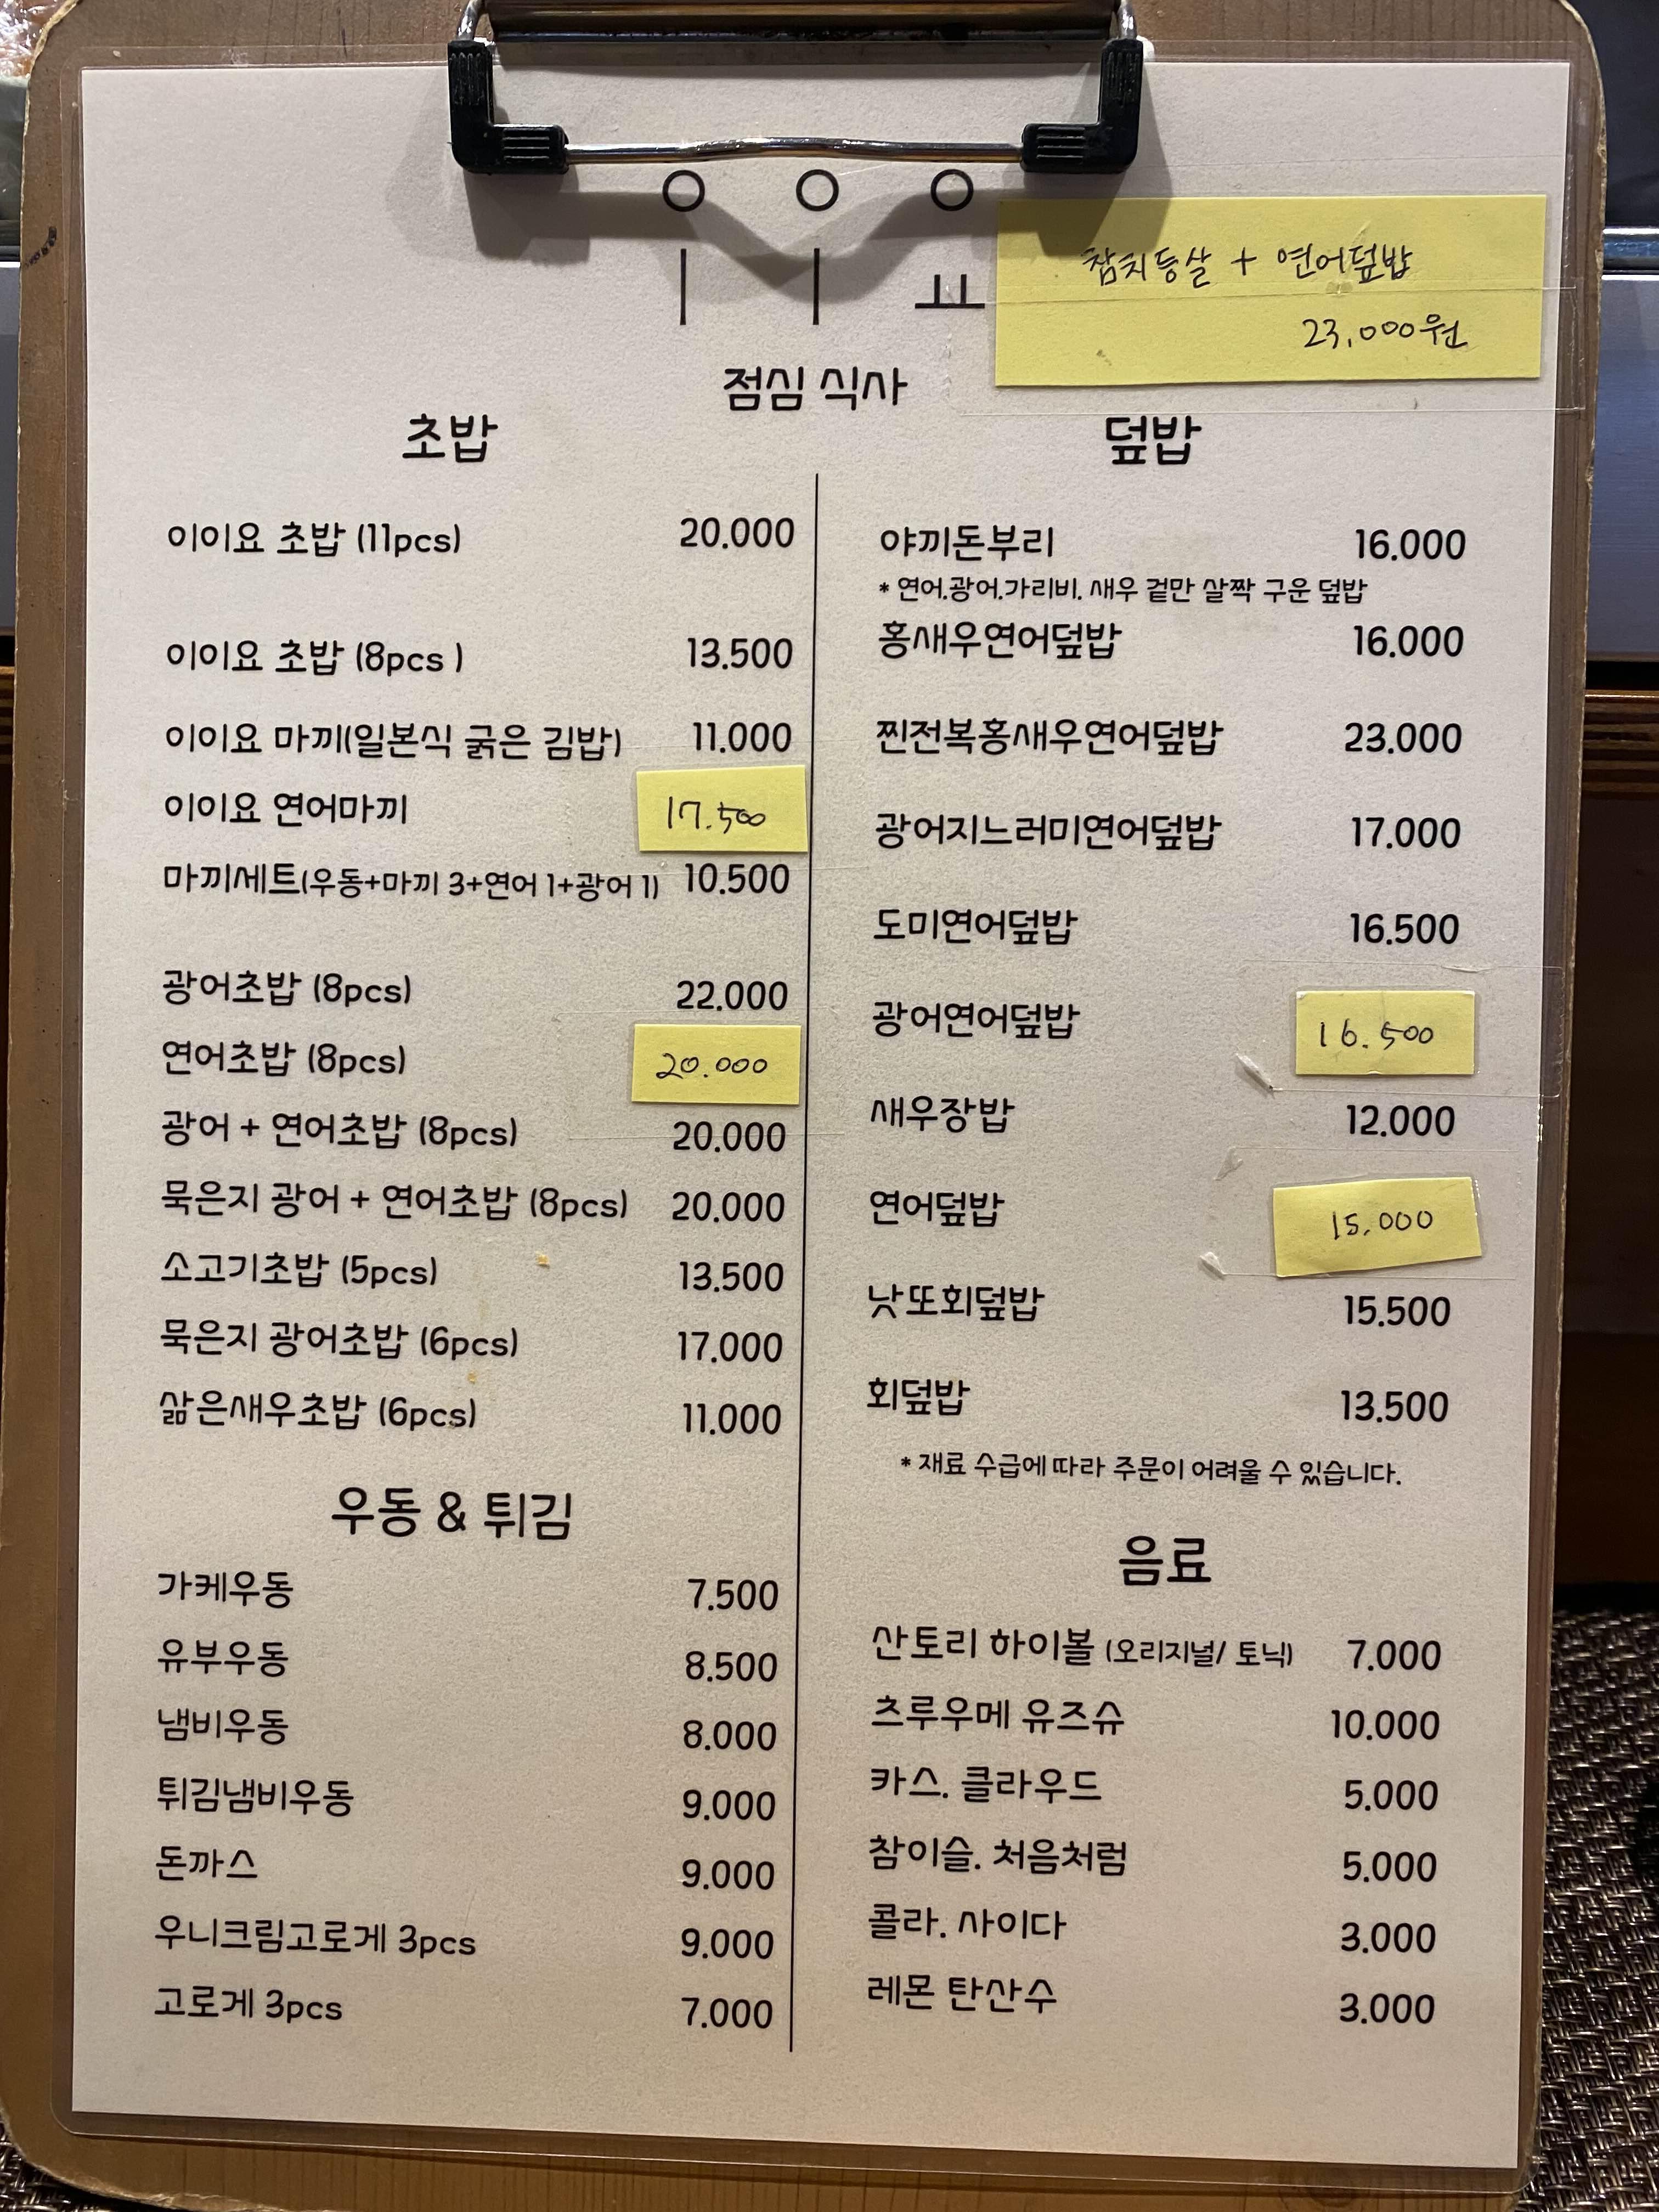 이이요
참치등살 + 연어덮밥
23,000원
점심 식사
초밥
이이요 초밥 (11pcs) 20.000
이이요 초밥 (8pcs ) 13.500
이이요 마끼(일본식 굵은 김밥) 11.000
이이요 연어마끼 17.500
마끼세트(우동+마끼 3+연어 1+광어 1) 10.500
광어초밥 (8pcs) 22.000
연어초밥 (8pcs) 20.000
광어 + 연어초밥 (8pcs) 20.000
묵은지 광어 + 연어초밥 (8pcs) 20.000
소고기초밥 (5pcs) 13.500
묵은지 광어초밥 (6pcs) 17.000
삶은새우초밥 (6pcs) 11.000
우동 & 튀김
가케우동 7.500
유부우동 8.500
냄비우동 8.000
튀김냄비우동 9.000
돈까스 9.000
우니크림고로게 3pcs 9.000
고로게 3pcs 7.000
덮밥
야끼돈부리 16.000
* 연어.광어.가리비. 새우 겉만 살짝 구운 덮밥
홍새우연어덮밥 16.000
찐전복홍새우연어덮밥 23.000
광어지느러미연어덮밥 17.000
도미연어덮밥 16.500
광어연어덮밥 16.500
새우장밥 12.000
연어덮밥 15.000
낫또회덮밥 15.500
회덮밥 13.500
* 재료 수급에 따라 주문이 어려울 수 있습니다.
음료
산토리 하이볼 (오리지널/ 토닉) 7.000
츠루우메 유즈슈 10.000
카스. 클라우드 5.000
참이슬. 처음처럼 5.000
콜라. 사이다 3.000
레몬 탄산수 3.000